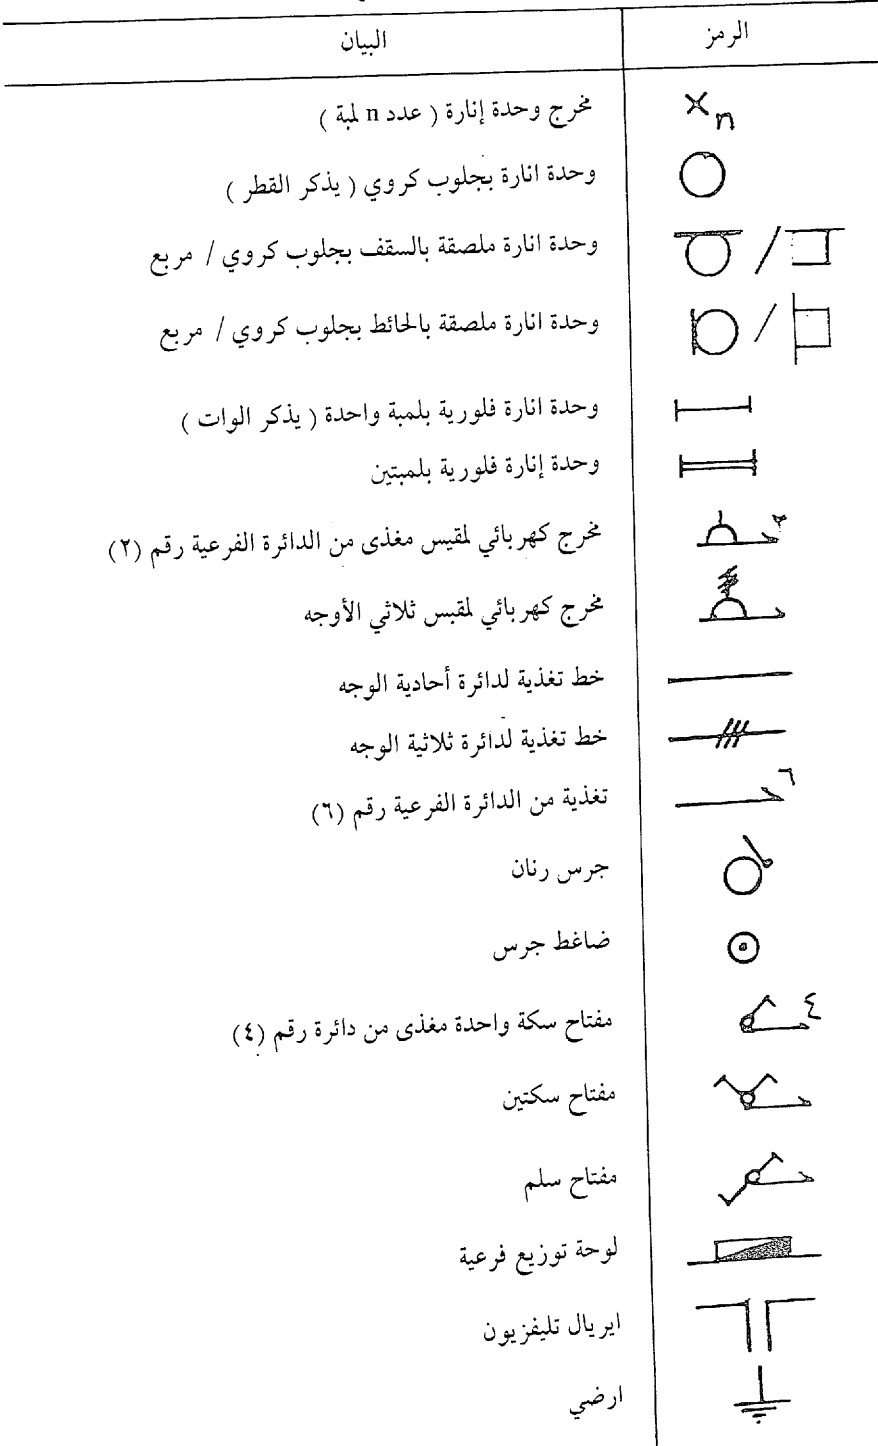 الرمز البيان
مخرج وحدة إنارة ( عدد n لمبة ) ×n
وحدة انارة بجلوب كروي ( يذكر القطر )
وحدة انارة ملصقة بالسقف بجلوب كروي / مربع /
وحدة انارة ملصقة بالحائط بجلوب كروي / مربع /
وحدة انارة فلورية بلمبة واحدة ( يذكر الوات )
وحدة إنارة فلورية بلمبتين
مخرج كهربائي لمقبس مغذى من الدائرة الفرعية رقم (٢)
مخرج كهربائي لمقبس ثلاثي الأوجه
خط تغذية لدائرة أحادية الوجه
خط تغذية لدائرة ثلاثية الوجه
٦ تغذية من الدائرة الفرعية رقم (٦)
جرس رنان
ضاغط جرس
٤ مفتاح سكة واحدة مغذى من دائرة رقم (٤)
مفتاح سكتين
مفتاح سلم
لوحة توزيع فرعية
ايريال تليفزيون
ارضي